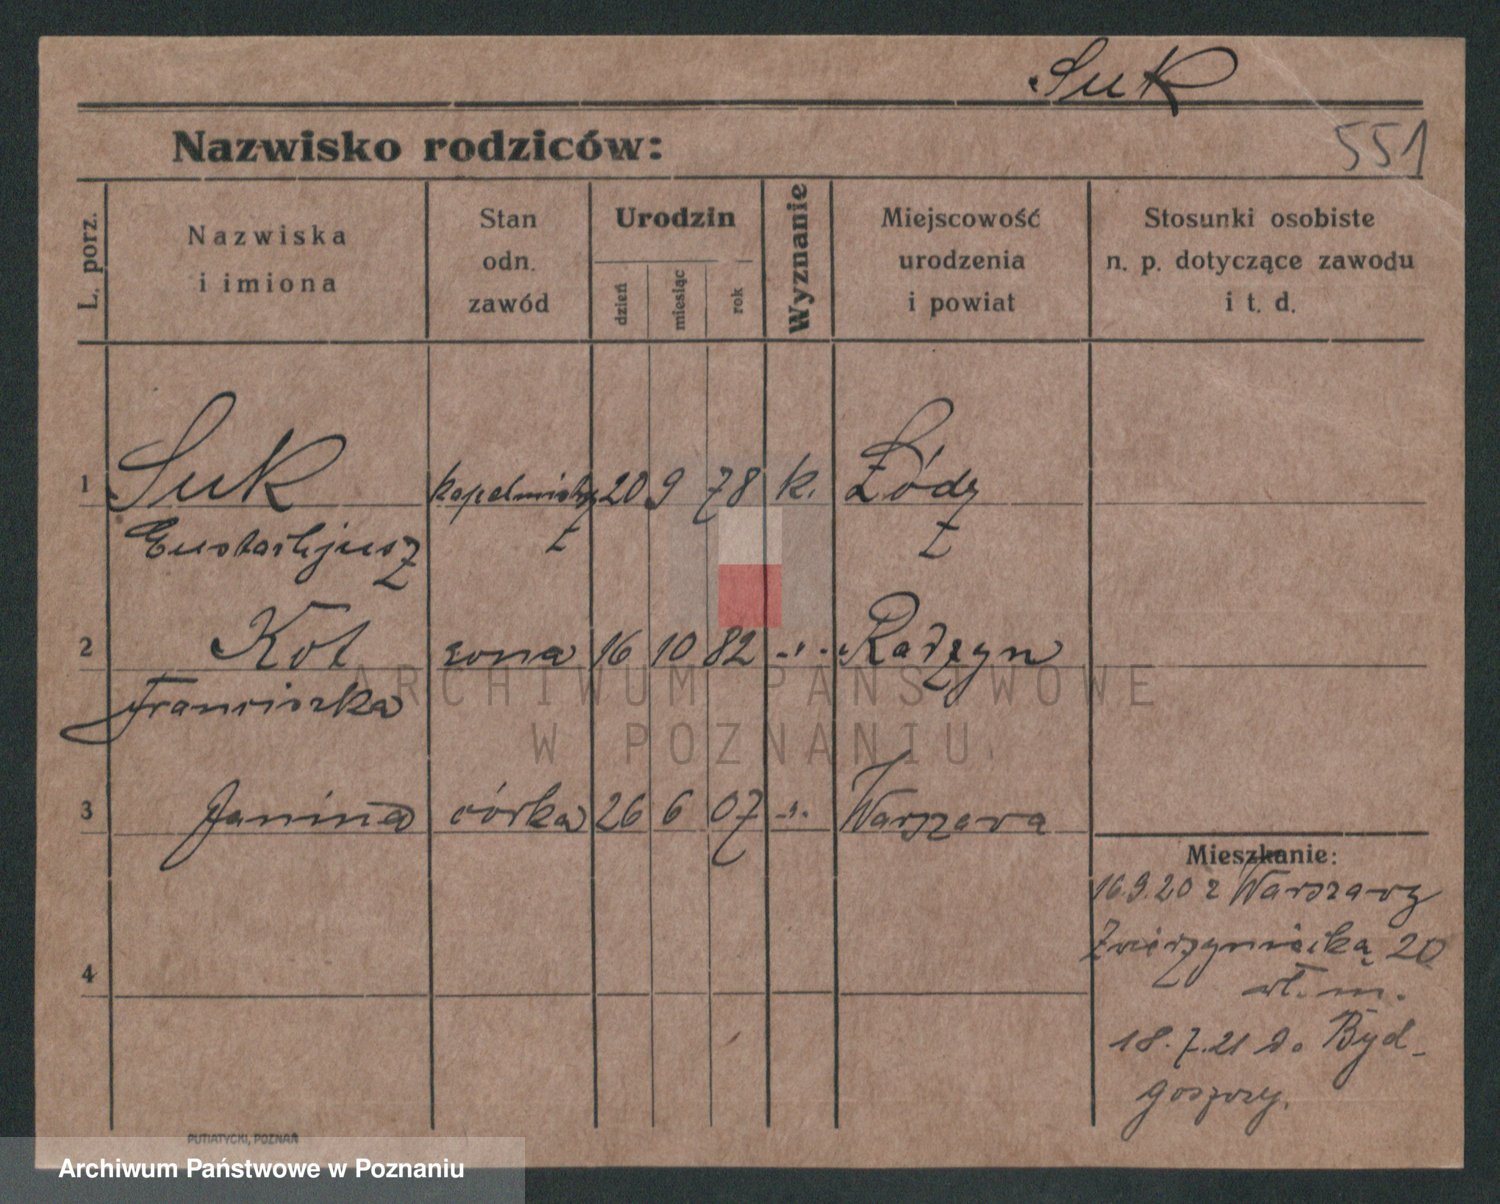 Suk
Nazwisko rodziców:
551
L. porz.
Nazwiska
i imiona
Stan
odn.
zawód
Urodzin
dzień
miesiąc
rok
Wyznanie
Miejscowość
urodzenia
i powiat
Stosunki osobiste
n. p. dotyczące zawodu
i t. d.
1 Suk 20 9 78 k. Łódz
Eustachjusz
2 Kot żona 16 10 82 -"- Radzyn
Franciszka
3 Janina córka 26 6 07 -"- Warszawa
Mieszkanie:
16.9.20 z Warszawy
Zwierzyniecka 20
wł. m.
4
18.7.21 do Byd-
goszczy.
PUTIATYCKI, POZNAŃ
ARCHIWUM PAŃSTWOWE
W POZNANIU
Archiwum Państwowe w Poznaniu